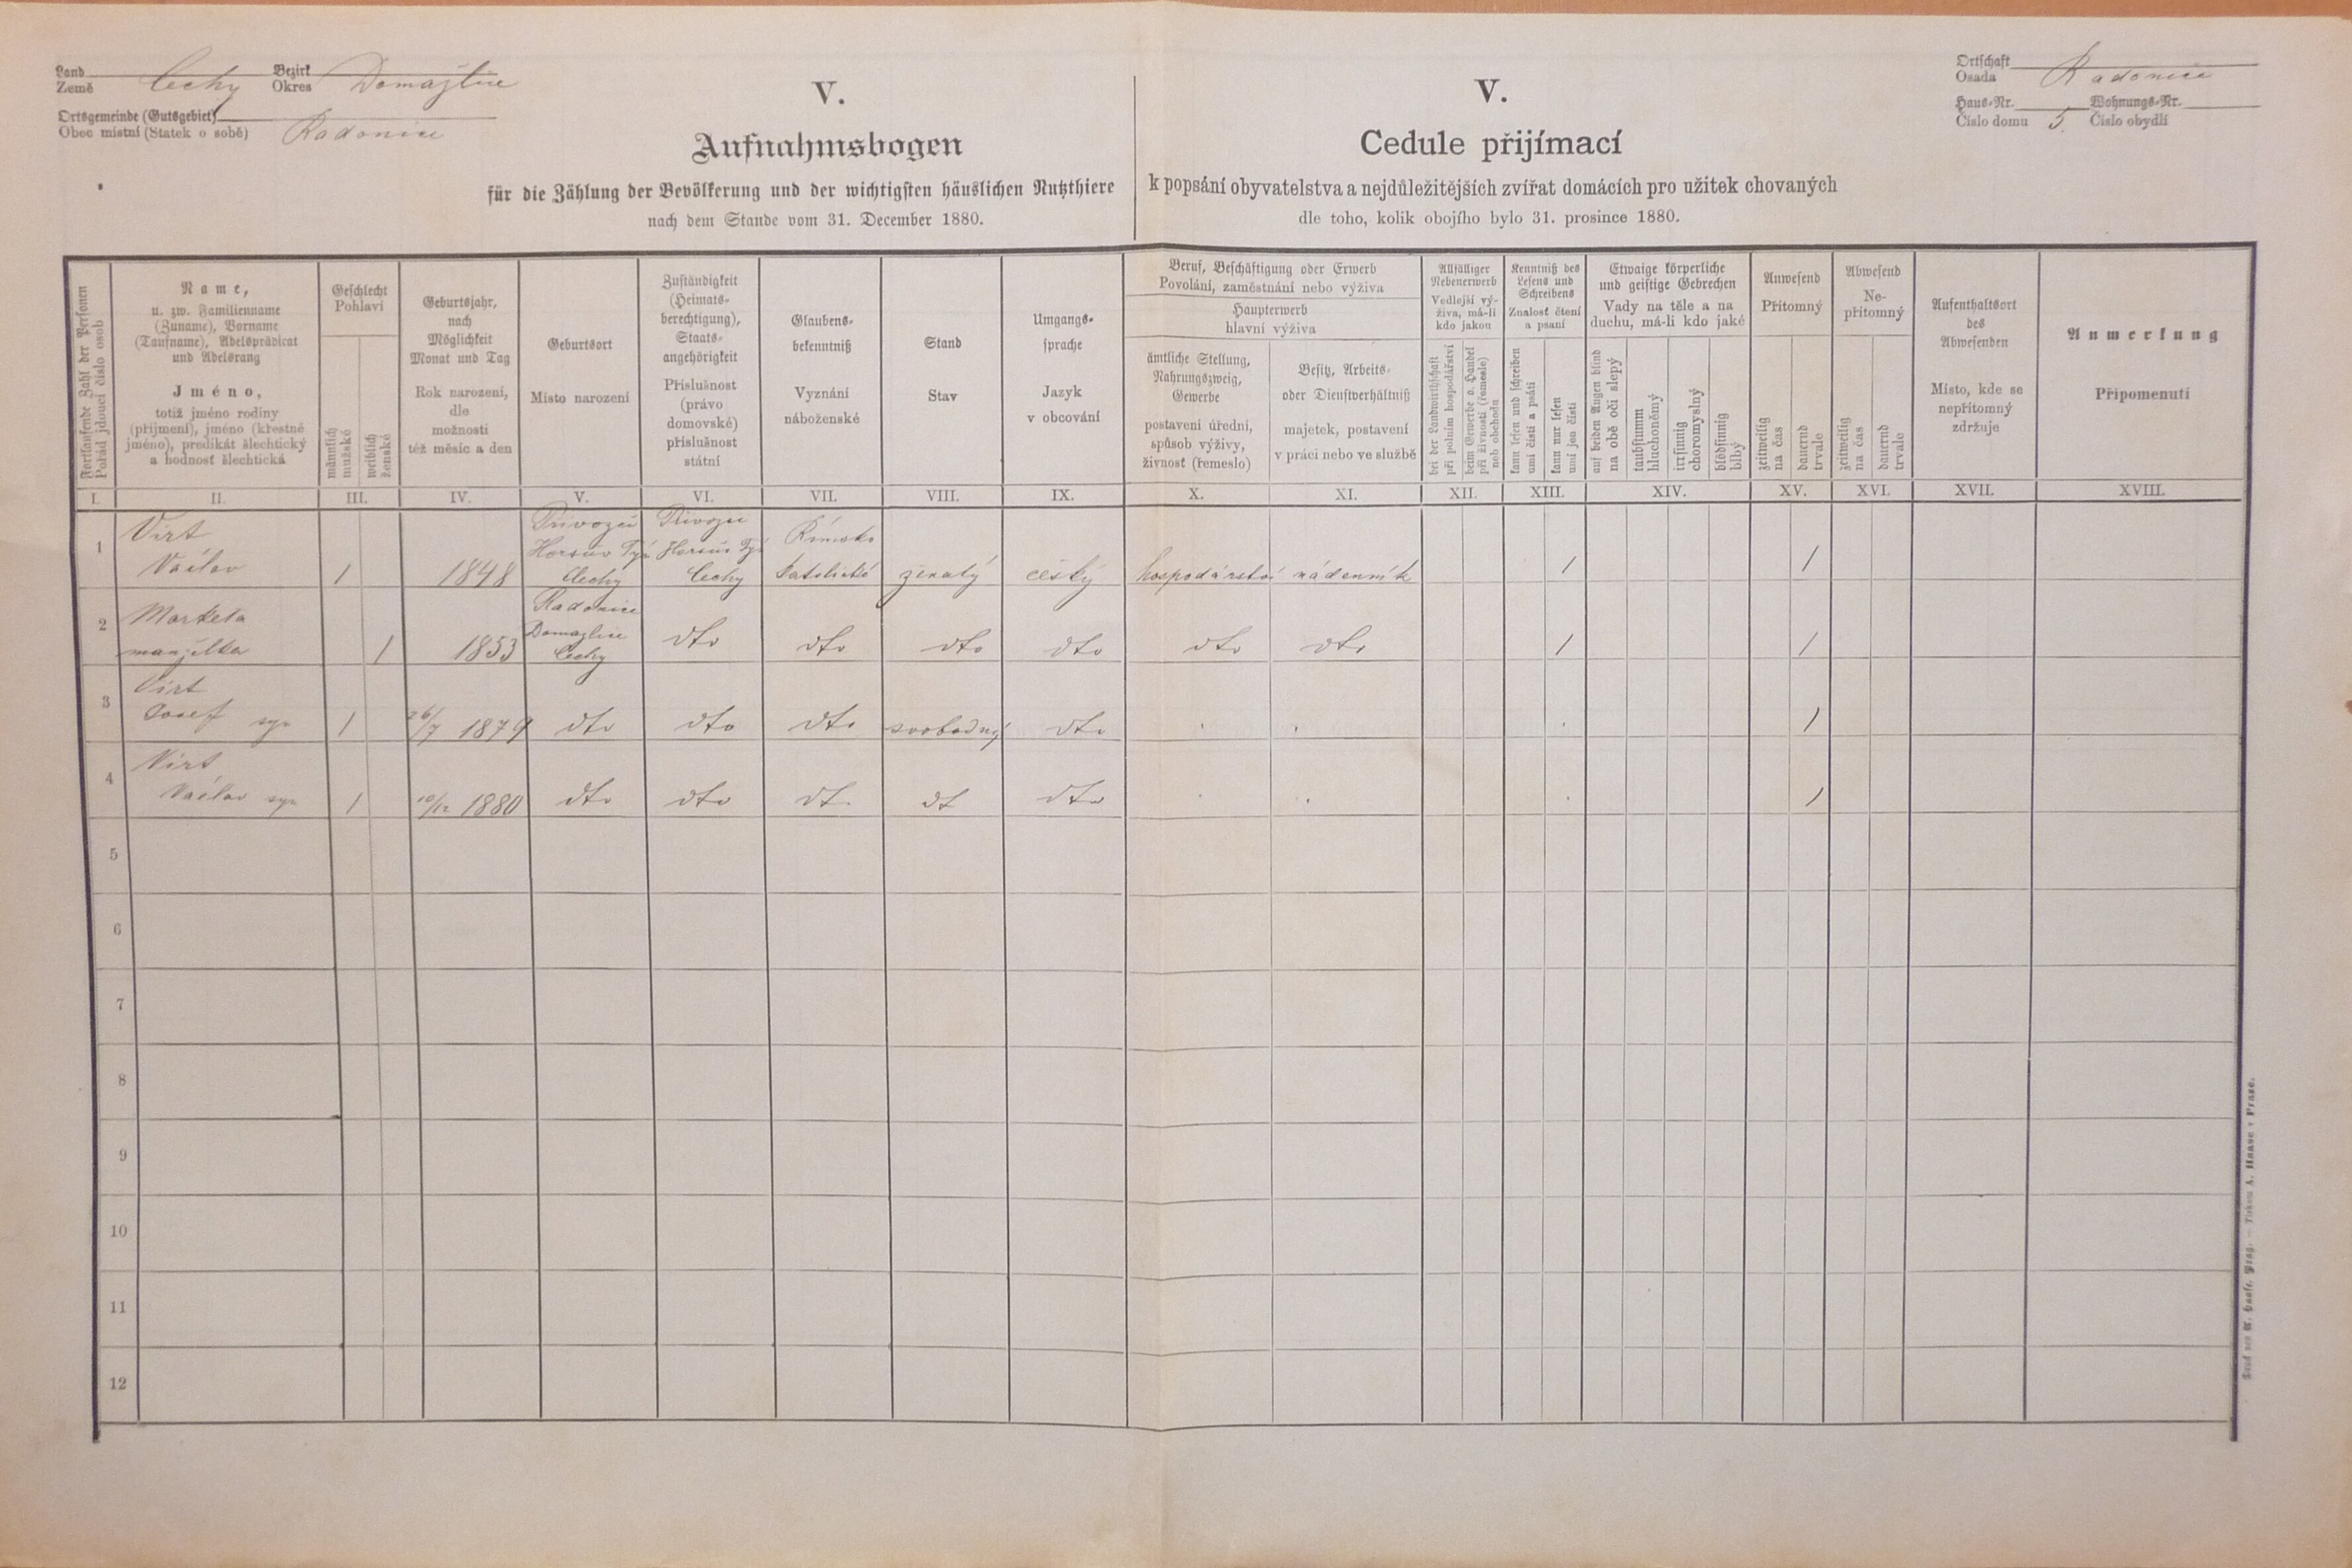 Land
Země Čechy
Bezirk
Okres Domažlice
Ortsgemeinde (Gutsgebiet)
Obec místní (Statek o sobě) Radonice
V.
Aufnahmsbogen
für die Zählung der Bevölkerung und der wichtigsten häuslichen Nutzthiere
nach dem Stande vom 31. December 1880.
V.
Cedule přijímací
k popsání obyvatelstva a nejdůležitějších zvířat domácích pro užitek chovaných
dle toho, kolik obojího bylo 31. prosince 1880.
Ortschaft
Osada Radonice
Haus-Nr.
Číslo domu 5
Wohnungs-Nr.
Číslo obydlí
Fortlaufende Zahl der Personen
Pořád jdoucí číslo osob
Name,
u. zw. Familienname
(Zuname), Vorname
(Taufname), Adelsprädicat
und Adelsrang
Jméno,
totiž jméno rodiny
(příjmení), jméno (křestné
jméno), predikát šlechtický
a hodnosť šlechtická
Geschlecht
Pohlaví
männlich
mužské
weiblich
ženské
Geburtsjahr,
nach
Möglichkeit
Monat und Tag
Rok narození,
dle
možnosti
též měsíc a den
Geburtsort
Místo narození
Zuständigkeit
(Heimats-
berechtigung),
Staats-
angehörigkeit
Příslušnost
(právo
domovské)
příslušnost
státní
Glaubens-
bekenntniß
Vyznání
náboženské
Stand
Stav
Umgangs-
sprache
Jazyk
v obcování
Beruf, Beschäftigung oder Erwerb
Povolání, zaměstnání nebo výživa
Haupterwerb
hlavní výživa
ämtliche Stellung,
Nahrungszweig,
Gewerbe
postavení úřední,
spůsob výživy,
živnosť (řemeslo)
Besitz, Arbeits-
oder Dienstverhältniß
majetek, postavení
v práci nebo ve službě
Allfälliger
Nebenerwerb
Vedlejší vý-
živa, má-li
kdo jakou
bei der Landwirthschaft
při polním hospodářství
beim Gewerbe o. Handel
při živnosti (řemesle)
neb obchodu
Kenntniß des
Lesens und
Schreibens
Znalosť čtení
a psaní
kann lesen und schreiben
umí čísti a psáti
kann nur lesen
umí jen čísti
Etwaige körperliche
und geistige Gebrechen
Vady na těle a na
duchu, má-li kdo jaké
auf beiden Augen blind
na obě oči slepý
taubstumm
hluchoněmý
irrsinnig
choromyslný
blödsinnig
blbý
Anwesend
Přítomný
zeitweilig
na čas
dauernd
trvale
Abwesend
Ne-
přítomný
zeitweilig
na čas
dauernd
trvale
Aufenthaltsort
des
Abwesenden
Místo, kde se
nepřítomný
zdržuje
Anmerkung
Připomenutí
I. II. III. IV. V. VI. VII. VIII. IX. X. XI. XII. XIII. XIV. XV. XVI. XVII. XVIII.
1
Virt
Václav
1
1848
Přívozci
Horšův Týn
Čechy
Přívozci
Horšův Týn
Čechy
Římsko
katolické
ženatý
český
hospodářství
nádenník
/
/
2
Marketa
manželka
1
1853
Radonice
Domažlice
Čechy
dto
dto
dto
dto
dto
dto
/
/
3
Virt
Josef syn
1
26/7 1879
dto
dto
dto
svobodný
dto
/
4
Virt
Václav syn
1
10/12 1880
dto
dto
dt
dt
dto
/
5
6
7
8
9
10
11
12
Druck von A. Haase, Prag. — Tiskem A. Haase v Praze.